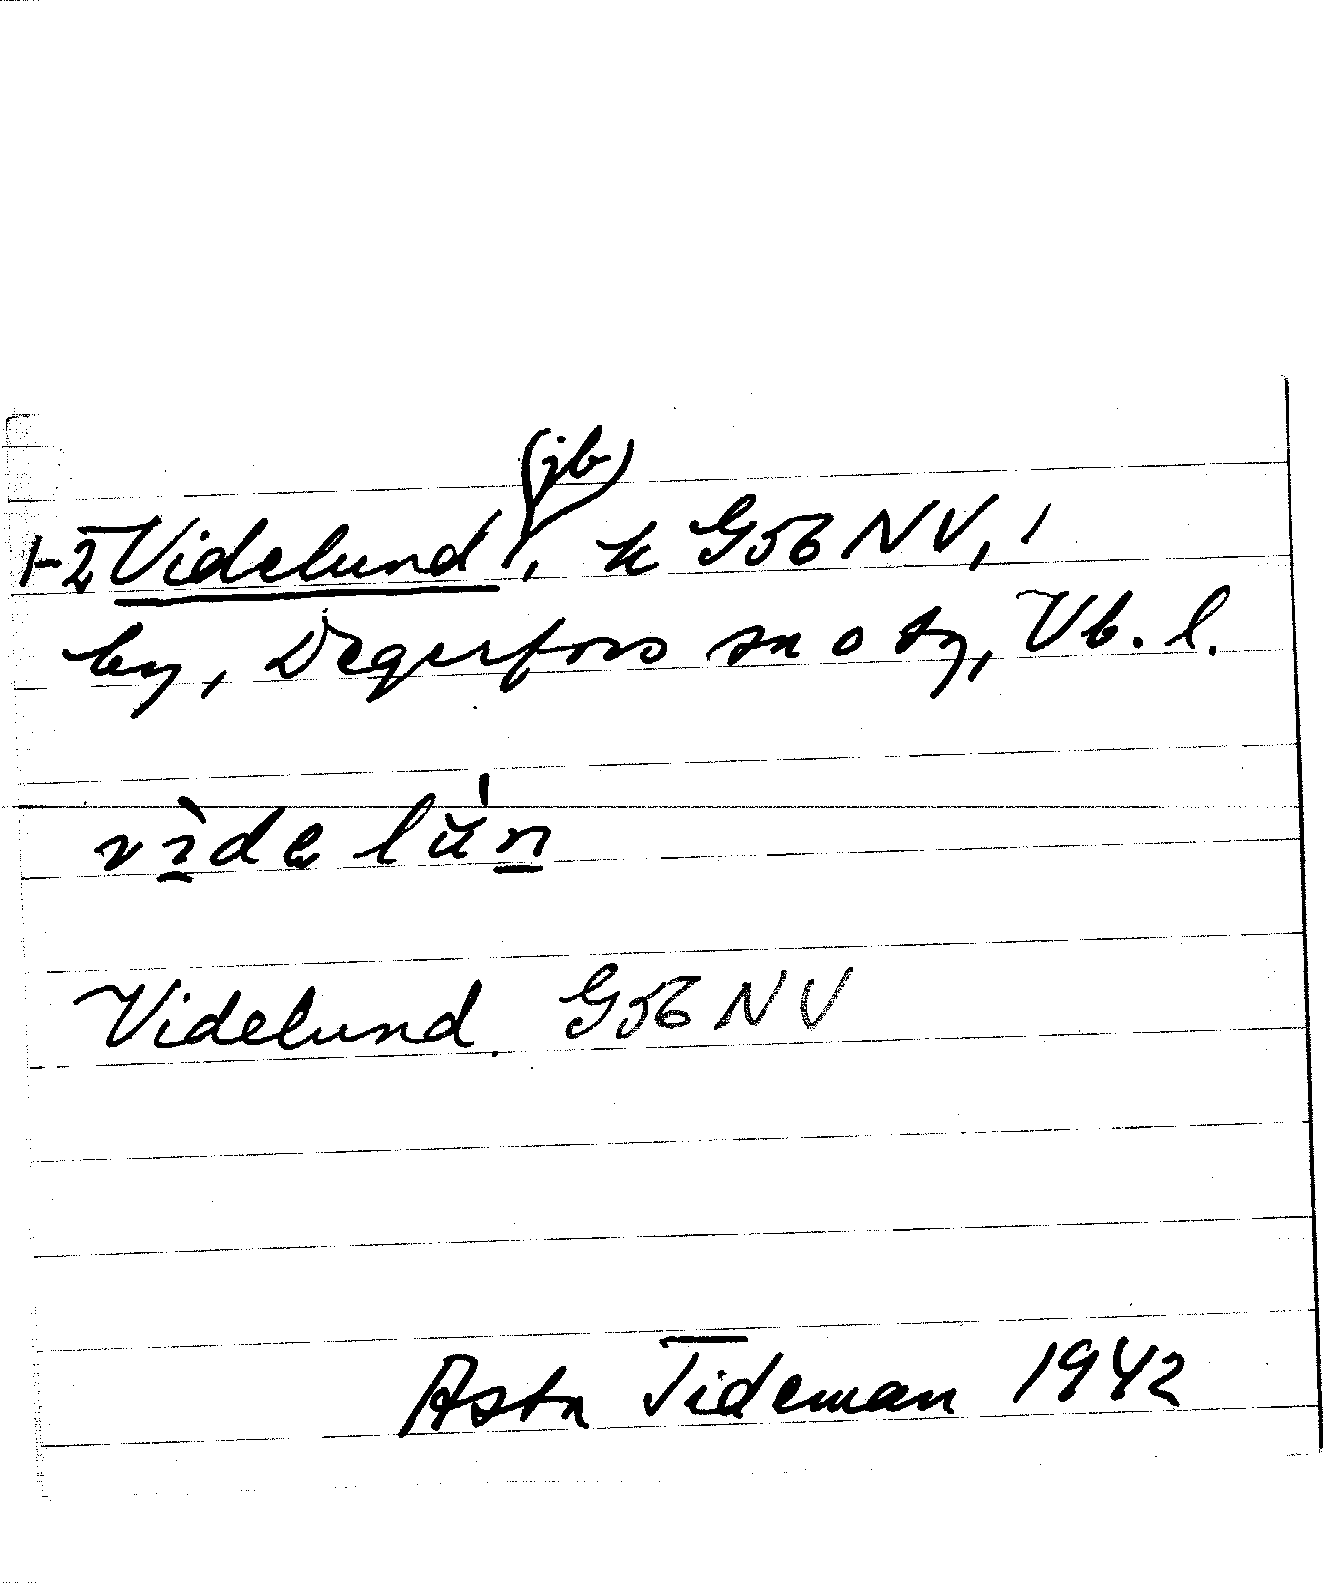 (jb)
1-2 Videlund, k G56 NV, 1
by, Degerfors sn o tg, Vb. l.
vìdelún
Videlund. G56 NV
Asta Tideman 1942